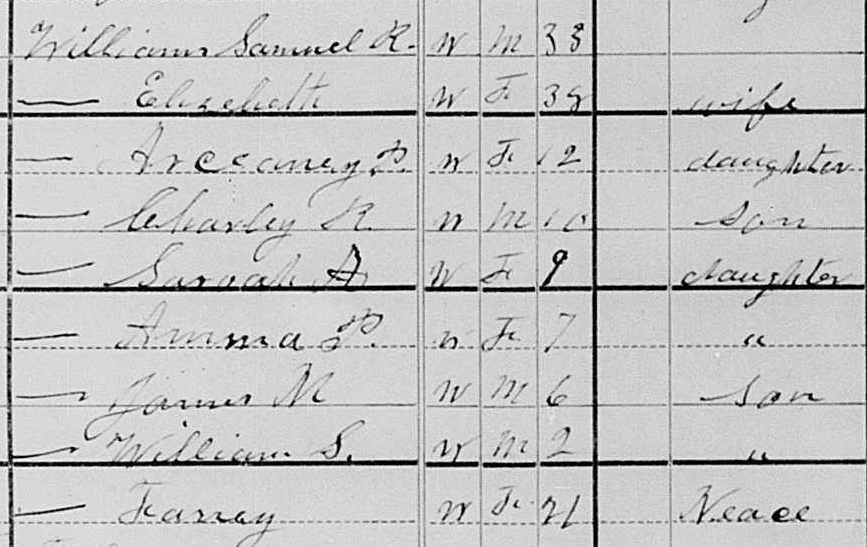 Williams Samuel R. W M 38
— Elizebeth W F 38 wife
— P. W F 12 daughter
— Charley R W M 10 son
— Saroah A W F 9 daughter
— Amma P. W F 7 "
— James M W M 6 son
— William S. W M 2 "
— Fanney W F 21 Neace